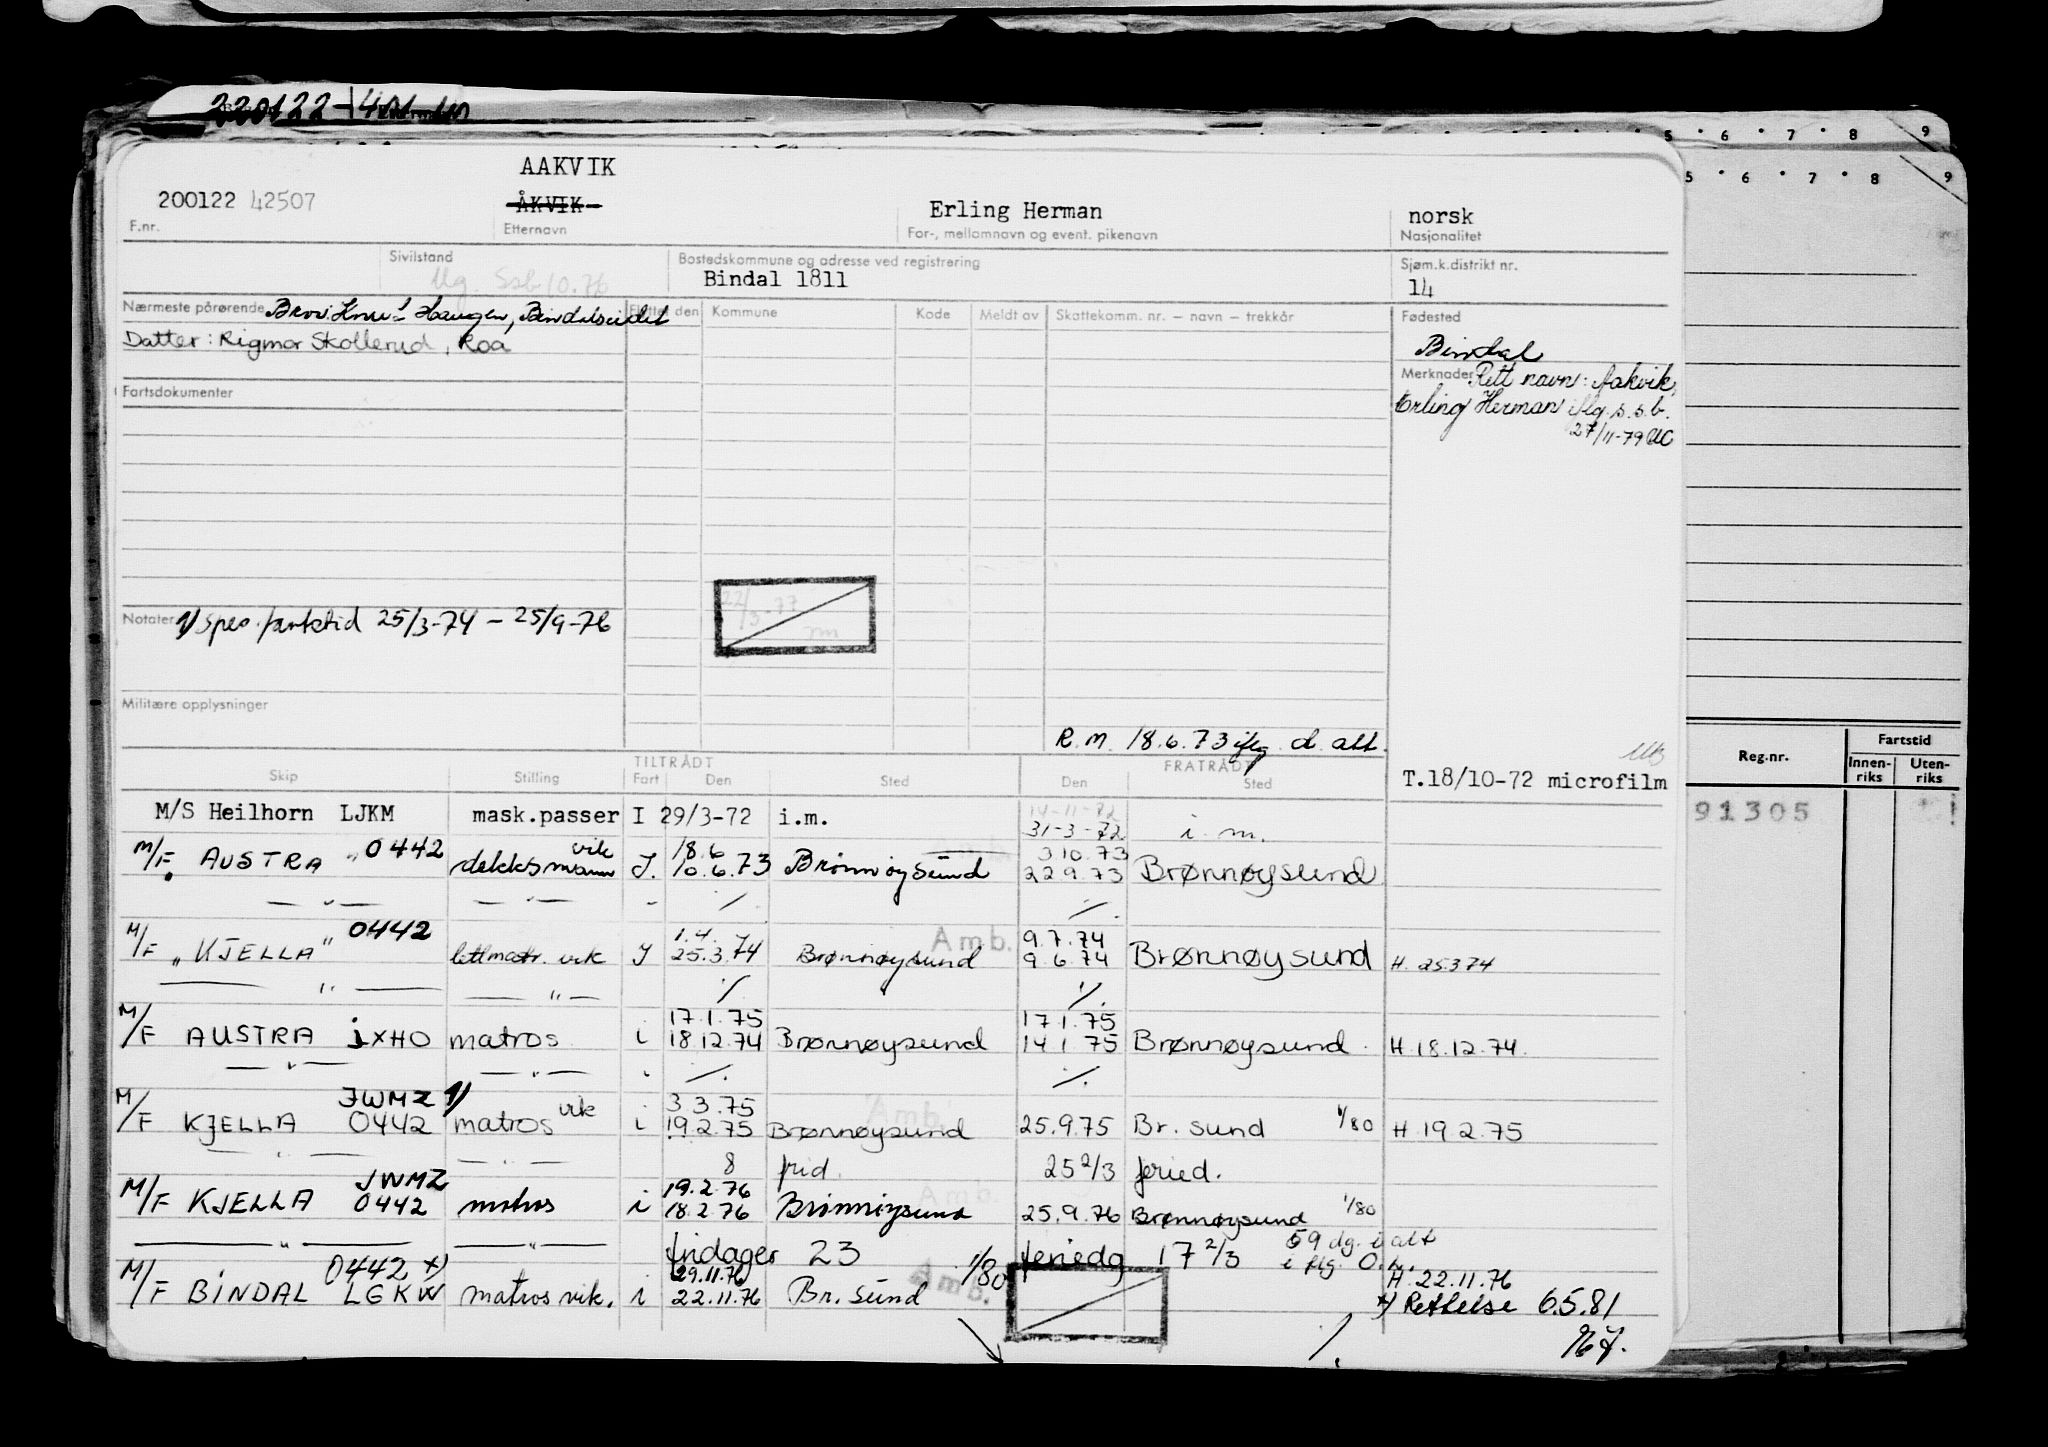 5 6 7 8 9
5 6 7 8 9
AAKVIK
200122 42507 ÅKVIK Erling Herman norsk
F.nr. Etternavn For-, mellomnavn og event. pikenavn Nasjonalitet
Sivilstand Bostedskommune og adresse ved registrering Sjøm.k.distrikt nr.
Ug. Ssb 10.76 Bindal 1811 14
Nærmeste pårørende Bror: Knut Haugen, Bindalseidet Flyttet den Kommune Kode Meldt av Skattekomm. nr. – navn – trekkår Fødested
Datter: Rigmor Skollerud, Roa Bindal
Merknader Rett navn: Aakvik,
Fartsdokumenter
Erling Herman iflg. s.s.b.
27/11-79
22/3-77
Notater 1) Spes. fartstid 25/3-74 – 25/9-76
Militære opplysninger
R.M. 18.6.73 iflg. d. att.
Skip Stilling TILTRÅDT Fart Den Sted FRATRÅDT Den Sted
T.18/10-72 microfilm
Reg.nr. Fartstid Innen-riks Uten-riks
91305
14-11-72
M/S Heilhorn LJKM mask.passer I 29/3-72 i.m. 31-3-72 i.m.
vik 18.6 3.10.73
M/F. AUSTRA " 0442 dekksmann J. 10.6.73 Brønnøysund 22.9.73 Brønnøysund
— " — — " — - ⁒ ⁒
0442 1.4. Amb. 9.7.74
M/F "KJELLA" lettmatr. vik J 25.3.74 Brønnøysund 9.6.74 Brønnøysund H. 25.3.74
— " — — " — ⁒ ⁒
17.1.75 17.1.75
M/F AUSTRA JXHO matros i 18.12.74 Brønnøysund 14.1.75 Brønnøysund H. 18.12.74.
— " — — " — ⁒ ⁒
JWMZ 1) vik 3.3.75 Amb.
M/F KJELLA 0442 matros i 19.2.75 Brønnøysund 25.9.75 Br.sund 1/80 H. 19.2.75
— " — — " — 8 frid. 25 2/3 feried.
JWMZ 19.2.76 Amb.
M/F KJELLA 0442 matros i 18.2.76 Brønnøysund 25.9.76 Brønnøysund 1/80
— " — — " — fridager 23 feriedg 17 2/3 59 dg. i alt
0442 x) 29.11.76 1/80 i flg. O.k. H. 22.11.76
M/F BINDAL LGKW matros vik. i 22.11.76 Br.sund Amb. x) Rettelse 6.5.81